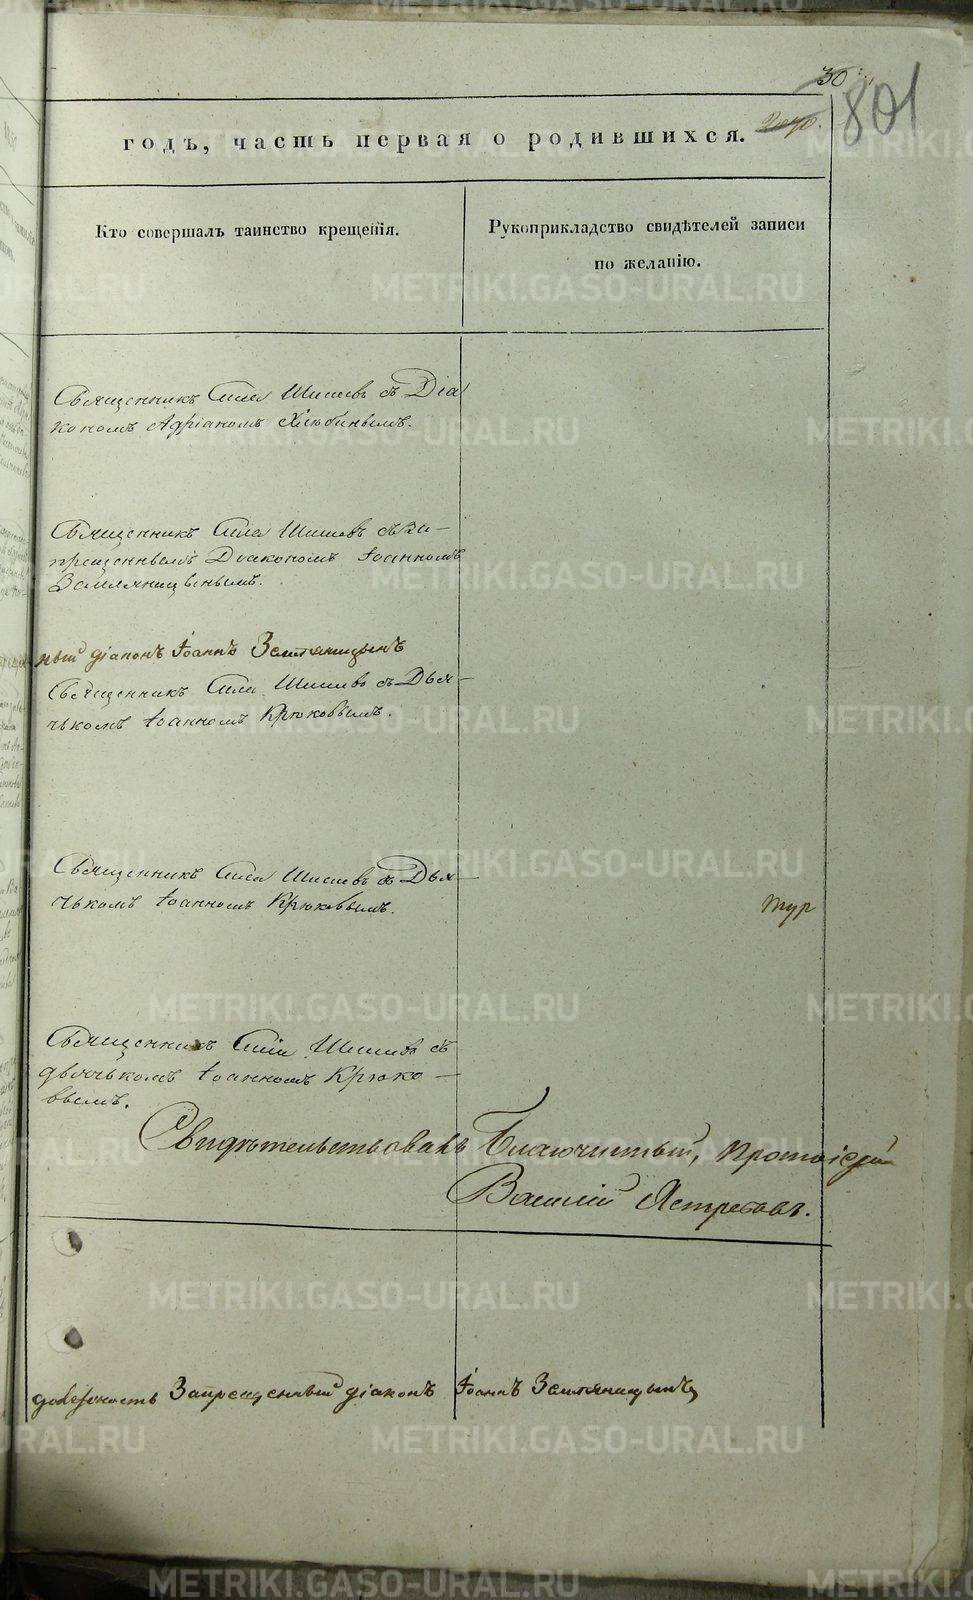 30
801
годъ, часть первая о родившихся.
Кто совершалъ таинство крещенія.
Рукоприкладство свидѣтелей записи
по желанію.
Священникъ Сила Шишевъ съ Діа
кономъ Адріаномъ Хлюбинымъ.
Священникъ Сила Шишевъ съ За-
прещеннымъ Діакономъ Іоанномъ
Земляницынымъ.
ный діаконъ Іоаннъ Земляницынъ
Священникъ Сила Шишевъ съ Дья-
чькомъ Іоанномъ Крюковымъ.
Священникъ Сила Шишевъ съ Дья-
чькомъ Іоанномъ Крюковымъ.
Тур
Священникъ Сила Шишевъ съ
дьячькомъ Іоанномъ Крюко-
вымъ.
Свидѣтельствовалъ Благочинный, Протоіерей
Василій Ястребовъ.
должность Запрещенный діаконъ Іоаннъ Земляницынъ
METRIKI.GASO-URAL.RU